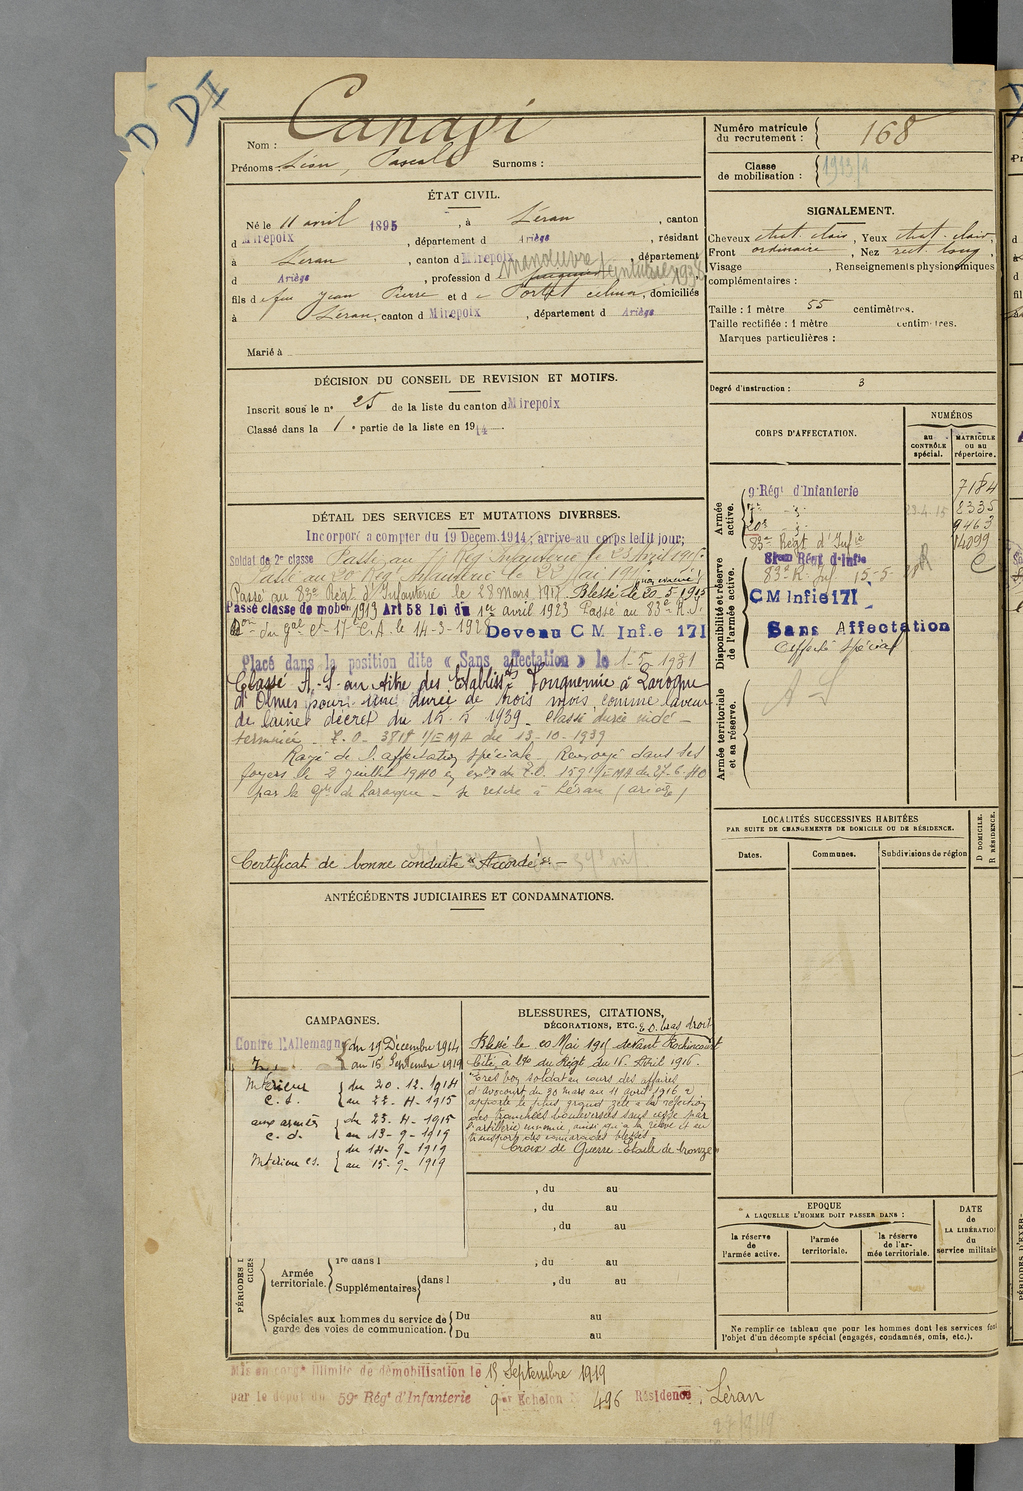 D DI
Canagi
Nom :
Prénoms : Léon, Pascal Surnoms :
Numéro matricule
du recrutement : 168
Classe
de mobilisation : 1913/4
ÉTAT CIVIL.
Né le 11 avril 1895, à Léran, canton
d Mirepoix, département d Ariège, résidant
à Léran, canton d Mirepoix, département
d Ariège, profession d manœuvre
fils de feu Jean Pierre et de Portet célina, domiciliés
à Léran, canton d Mirepoix, département d Ariège
Marié à
SIGNALEMENT.
Cheveux chat. clair, Yeux chat. clair,
Front ordinaire, Nez rect. long,
Visage , Renseignements physionomiques
complémentaires :
Taille : 1 mètre 55 centimètres.
Taille rectifiée : 1 mètre centimètres.
Marques particulières :
Degré d'instruction : 3
DÉCISION DU CONSEIL DE REVISION ET MOTIFS.
Inscrit sous le n° 25 de la liste du canton d Mirepoix
Classé dans la 1e partie de la liste en 1914
CORPS D'AFFECTATION.
NUMÉROS
au
CONTRÔLE
spécial.
MATRICULE
ou au
répertoire.
Armée
active.
9e Régt d'Infanterie 7184
7e -d- 23.4.15 8335
20e -d- 9463
83e Régt d'Infie 14099
Disponibilité et réserve
de l'armée active.
81eme Régt d'Infie C
83e R. Inf 15-5-28 R
CM Infie 171
Sans Affectation
Affecté spécial
A-S
Armée territoriale
et sa réserve.
DÉTAIL DES SERVICES ET MUTATIONS DIVERSES.
Incorporé a compter du 19 Décem. 1914; arrive au corps ledit jour;
Soldat de 2e classe Passé au 7e Rég Infanterie le 23 Avril 1915.
Passé au 20e Rég Infanterie le 22 Mai 1915.
(non évacué)
Passé au 83e Régt d'Infanterie le 28 mars 1917. Blessé le 20-5-1915
Passé classe de mobon 1913 Art 58 loi du 1er avril 1923 Passé au 83e R.I.
Don du gal Ct 17e C.A. le 14-3-1928 Devenu C M Inf.e 171
Placé dans la position dite « Sans affectation » le 1-5-1931
Classé A.S au titre des Etablissts Fonquernie à Laroque
d'Olmes pour une durée de trois mois, comme laveur
de laine décret du 15-5 1939. Classé durée indé-
terminée. T.O. 3818 1/EMA du 13-10-1939
Rayé de l'affectation spéciale. Renvoyé dans ses
foyers le 2 juillet 1940 en exon du T.O. 1591/EMA du 27-6-40
par la Gie de Laroque - se retire à Léran (ariège)
Certificat de bonne conduite "Accordé" -
ANTÉCÉDENTS JUDICIAIRES ET CONDAMNATIONS.
LOCALITÉS SUCCESSIVES HABITÉES
PAR SUITE DE CHANGEMENTS DE DOMICILE OU DE RÉSIDENCE.
Dates.
Communes.
Subdivisions de région
D DOMICILE.
R RÉSIDENCE.
CAMPAGNES.
Contre l'Allemagne du 19 Décembre 1914
au 15 Septembre 1919
Intérieur du 20.12.1914
C.S. au 22-4-1915
aux armées du 23-4-1915
C.d. au 13-9-1919
du 14-9-1919
Intérieur CS. au 15-9-1919
BLESSURES, CITATIONS,
DÉCORATIONS, ETC.
E.O. bras droit
Blessé le 20 Mai 1915 devant Rochincourt
Cité à l'O du Régt du 16 Avril 1916.
"Très bon soldat au cours des affaires
d'Avocourt du 30 mars au 11 avril 1916 a
apporté le plus grand zèle à la réfection
des tranchées bouleversées sans cesse par
l'artillerie ennemie, ainsi qu'à la relève et au
transport des camarades blessés.
Croix de Guerre - Etoile de bronze"
, du au
, du au
, du au
PÉRIODES D'
CICES
Armée
territoriale.
1re dans l , du au
Supplémentaires dans l , du au
Spéciales aux hommes du service de
garde des voies de communication.
Du au
Du au
EPOQUE
A LAQUELLE L'HOMME DOIT PASSER DANS :
la réserve
de
l'armée active.
l'armée
territoriale.
la réserve
de l'ar-
mée territoriale.
DATE
de
LA LIBÉRATION
du
service militaire
Ne remplir ce tableau que pour les hommes dont les services font
l'objet d'un décompte spécial (engagés, condamnés, omis, etc.).
Mis en congé illimité de démobilisation le 15 Septembre 1919
par le dépôt du 59e Régt d'Infanterie 9e Echelon 496 Résidence Léran
27/9/19